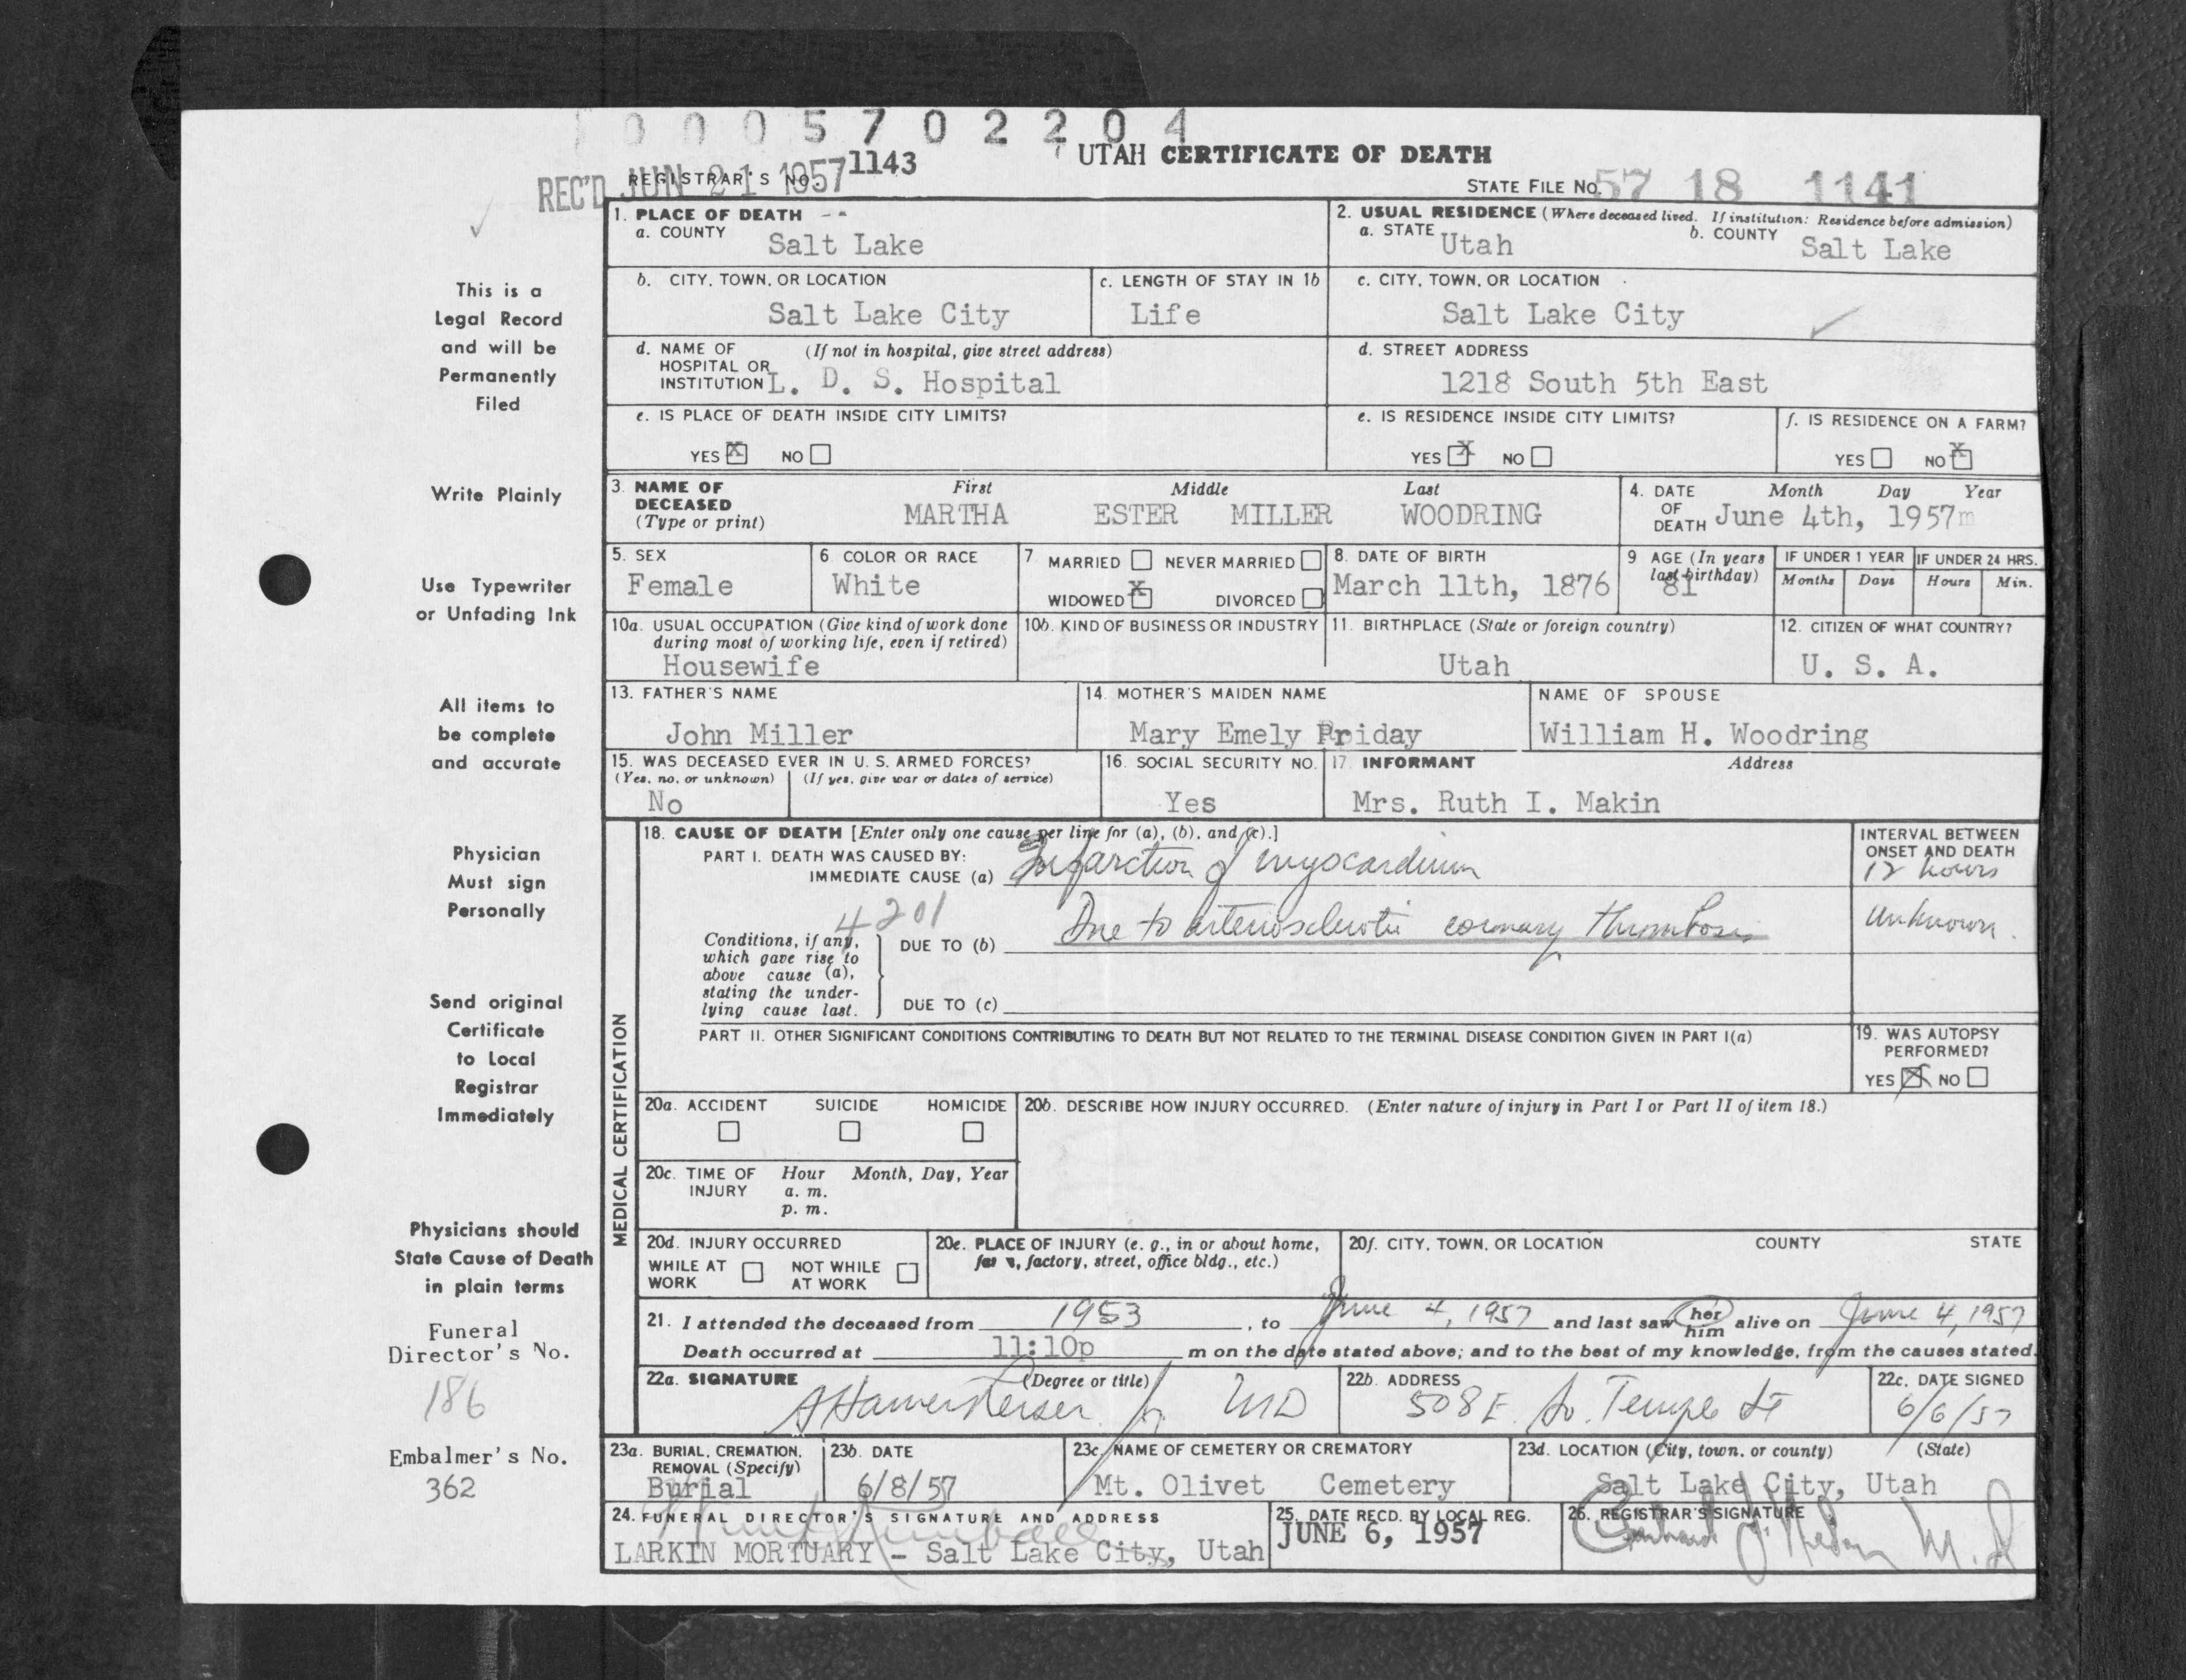 0005702204
REC'D JUN 21 1957
REGISTRAR'S NO. 1143
UTAH CERTIFICATE OF DEATH
STATE FILE NO. 57 18 1141
1. PLACE OF DEATH
a. COUNTY Salt Lake
2. USUAL RESIDENCE (Where deceased lived. If institution: Residence before admission)
a. STATE Utah b. COUNTY Salt Lake
b. CITY, TOWN, OR LOCATION
Salt Lake City
c. LENGTH OF STAY IN 1b
Life
c. CITY, TOWN, OR LOCATION
Salt Lake City
d. NAME OF HOSPITAL OR INSTITUTION (If not in hospital, give street address)
L. D. S. Hospital
d. STREET ADDRESS
1218 South 5th East
e. IS PLACE OF DEATH INSIDE CITY LIMITS?
YES X NO
e. IS RESIDENCE INSIDE CITY LIMITS?
YES X NO
f. IS RESIDENCE ON A FARM?
YES NO X
3. NAME OF DECEASED (Type or print)
First Middle Last
MARTHA ESTER MILLER WOODRING
4. DATE OF DEATH Month Day Year
June 4th, 1957m
5. SEX
Female
6. COLOR OR RACE
White
7. MARRIED NEVER MARRIED
WIDOWED X DIVORCED
8. DATE OF BIRTH
March 11th, 1876
9 AGE (In years last birthday)
81
IF UNDER 1 YEAR
Months Days
IF UNDER 24 HRS.
Hours Min.
10a. USUAL OCCUPATION (Give kind of work done during most of working life, even if retired)
Housewife
10b. KIND OF BUSINESS OR INDUSTRY
11. BIRTHPLACE (State or foreign country)
Utah
12. CITIZEN OF WHAT COUNTRY?
U. S. A.
13. FATHER'S NAME
John Miller
14. MOTHER'S MAIDEN NAME
Mary Emely Priday
NAME OF SPOUSE
William H. Woodring
15. WAS DECEASED EVER IN U. S. ARMED FORCES?
(Yes, no, or unknown) (If yes, give war or dates of service)
No
16. SOCIAL SECURITY NO.
Yes
17. INFORMANT Address
Mrs. Ruth I. Makin
MEDICAL CERTIFICATION
18. CAUSE OF DEATH [Enter only one cause per line for (a), (b), and (c).]
PART I. DEATH WAS CAUSED BY:
IMMEDIATE CAUSE (a) Infarction of myocardium
INTERVAL BETWEEN ONSET AND DEATH
12 hours
4201
Conditions, if any, which gave rise to above cause (a), stating the underlying cause last.
DUE TO (b) Due to arteriosclerotic coronary thrombosis
Unknown.
DUE TO (c)
PART II. OTHER SIGNIFICANT CONDITIONS CONTRIBUTING TO DEATH BUT NOT RELATED TO THE TERMINAL DISEASE CONDITION GIVEN IN PART I(a)
19. WAS AUTOPSY PERFORMED?
YES X NO
20a. ACCIDENT SUICIDE HOMICIDE
20b. DESCRIBE HOW INJURY OCCURRED. (Enter nature of injury in Part I or Part II of item 18.)
20c. TIME OF INJURY Hour Month, Day, Year
a. m.
p. m.
20d. INJURY OCCURRED
WHILE AT WORK NOT WHILE AT WORK
20e. PLACE OF INJURY (e. g., in or about home, farm, factory, street, office bldg., etc.)
20f. CITY, TOWN, OR LOCATION COUNTY STATE
21. I attended the deceased from 1953, to June 4, 1957 and last saw her him alive on June 4, 1957
Death occurred at 11:10p m on the date stated above; and to the best of my knowledge, from the causes stated.
22a. SIGNATURE (Degree or title)
Jr. MD
22b. ADDRESS
508 E. So. Temple St
22c. DATE SIGNED
6/6/57
23a. BURIAL, CREMATION, REMOVAL (Specify)
Burial
23b. DATE
6/8/57
23c. NAME OF CEMETERY OR CREMATORY
Mt. Olivet Cemetery
23d. LOCATION (City, town, or county) (State)
Salt Lake City, Utah
24. FUNERAL DIRECTOR'S SIGNATURE AND ADDRESS
LARKIN MORTUARY - Salt Lake City, Utah
25. DATE RECD. BY LOCAL REG.
JUNE 6, 1957
26. REGISTRAR'S SIGNATURE
M.D
This is a
Legal Record
and will be
Permanently
Filed
Write Plainly
Use Typewriter
or Unfading Ink
All items to
be complete
and accurate
Physician
Must sign
Personally
Send original
Certificate
to Local
Registrar
Immediately
Physicians should
State Cause of Death
in plain terms
Funeral
Director's No.
186
Embalmer's No.
362